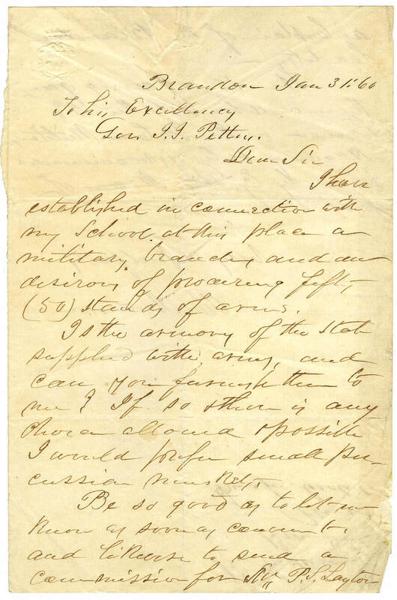 Brandon Jan 31. 60
To his Excellency
Gov. J. J. Pettus.
Dear Sir
I have
established in connection with
my School at this place a
military branch, and am
desirous of procuring fifty
(50) stands of arms.
Is the armory of the State
supplied with arms, and
can you furnish them to
me? If so & there is any
choice allowed & possible
I would prefer small per-
cussion muskets.
Be so good as to let me
know as soon as convent.
and likewise to send a
commission for P. S. Layton